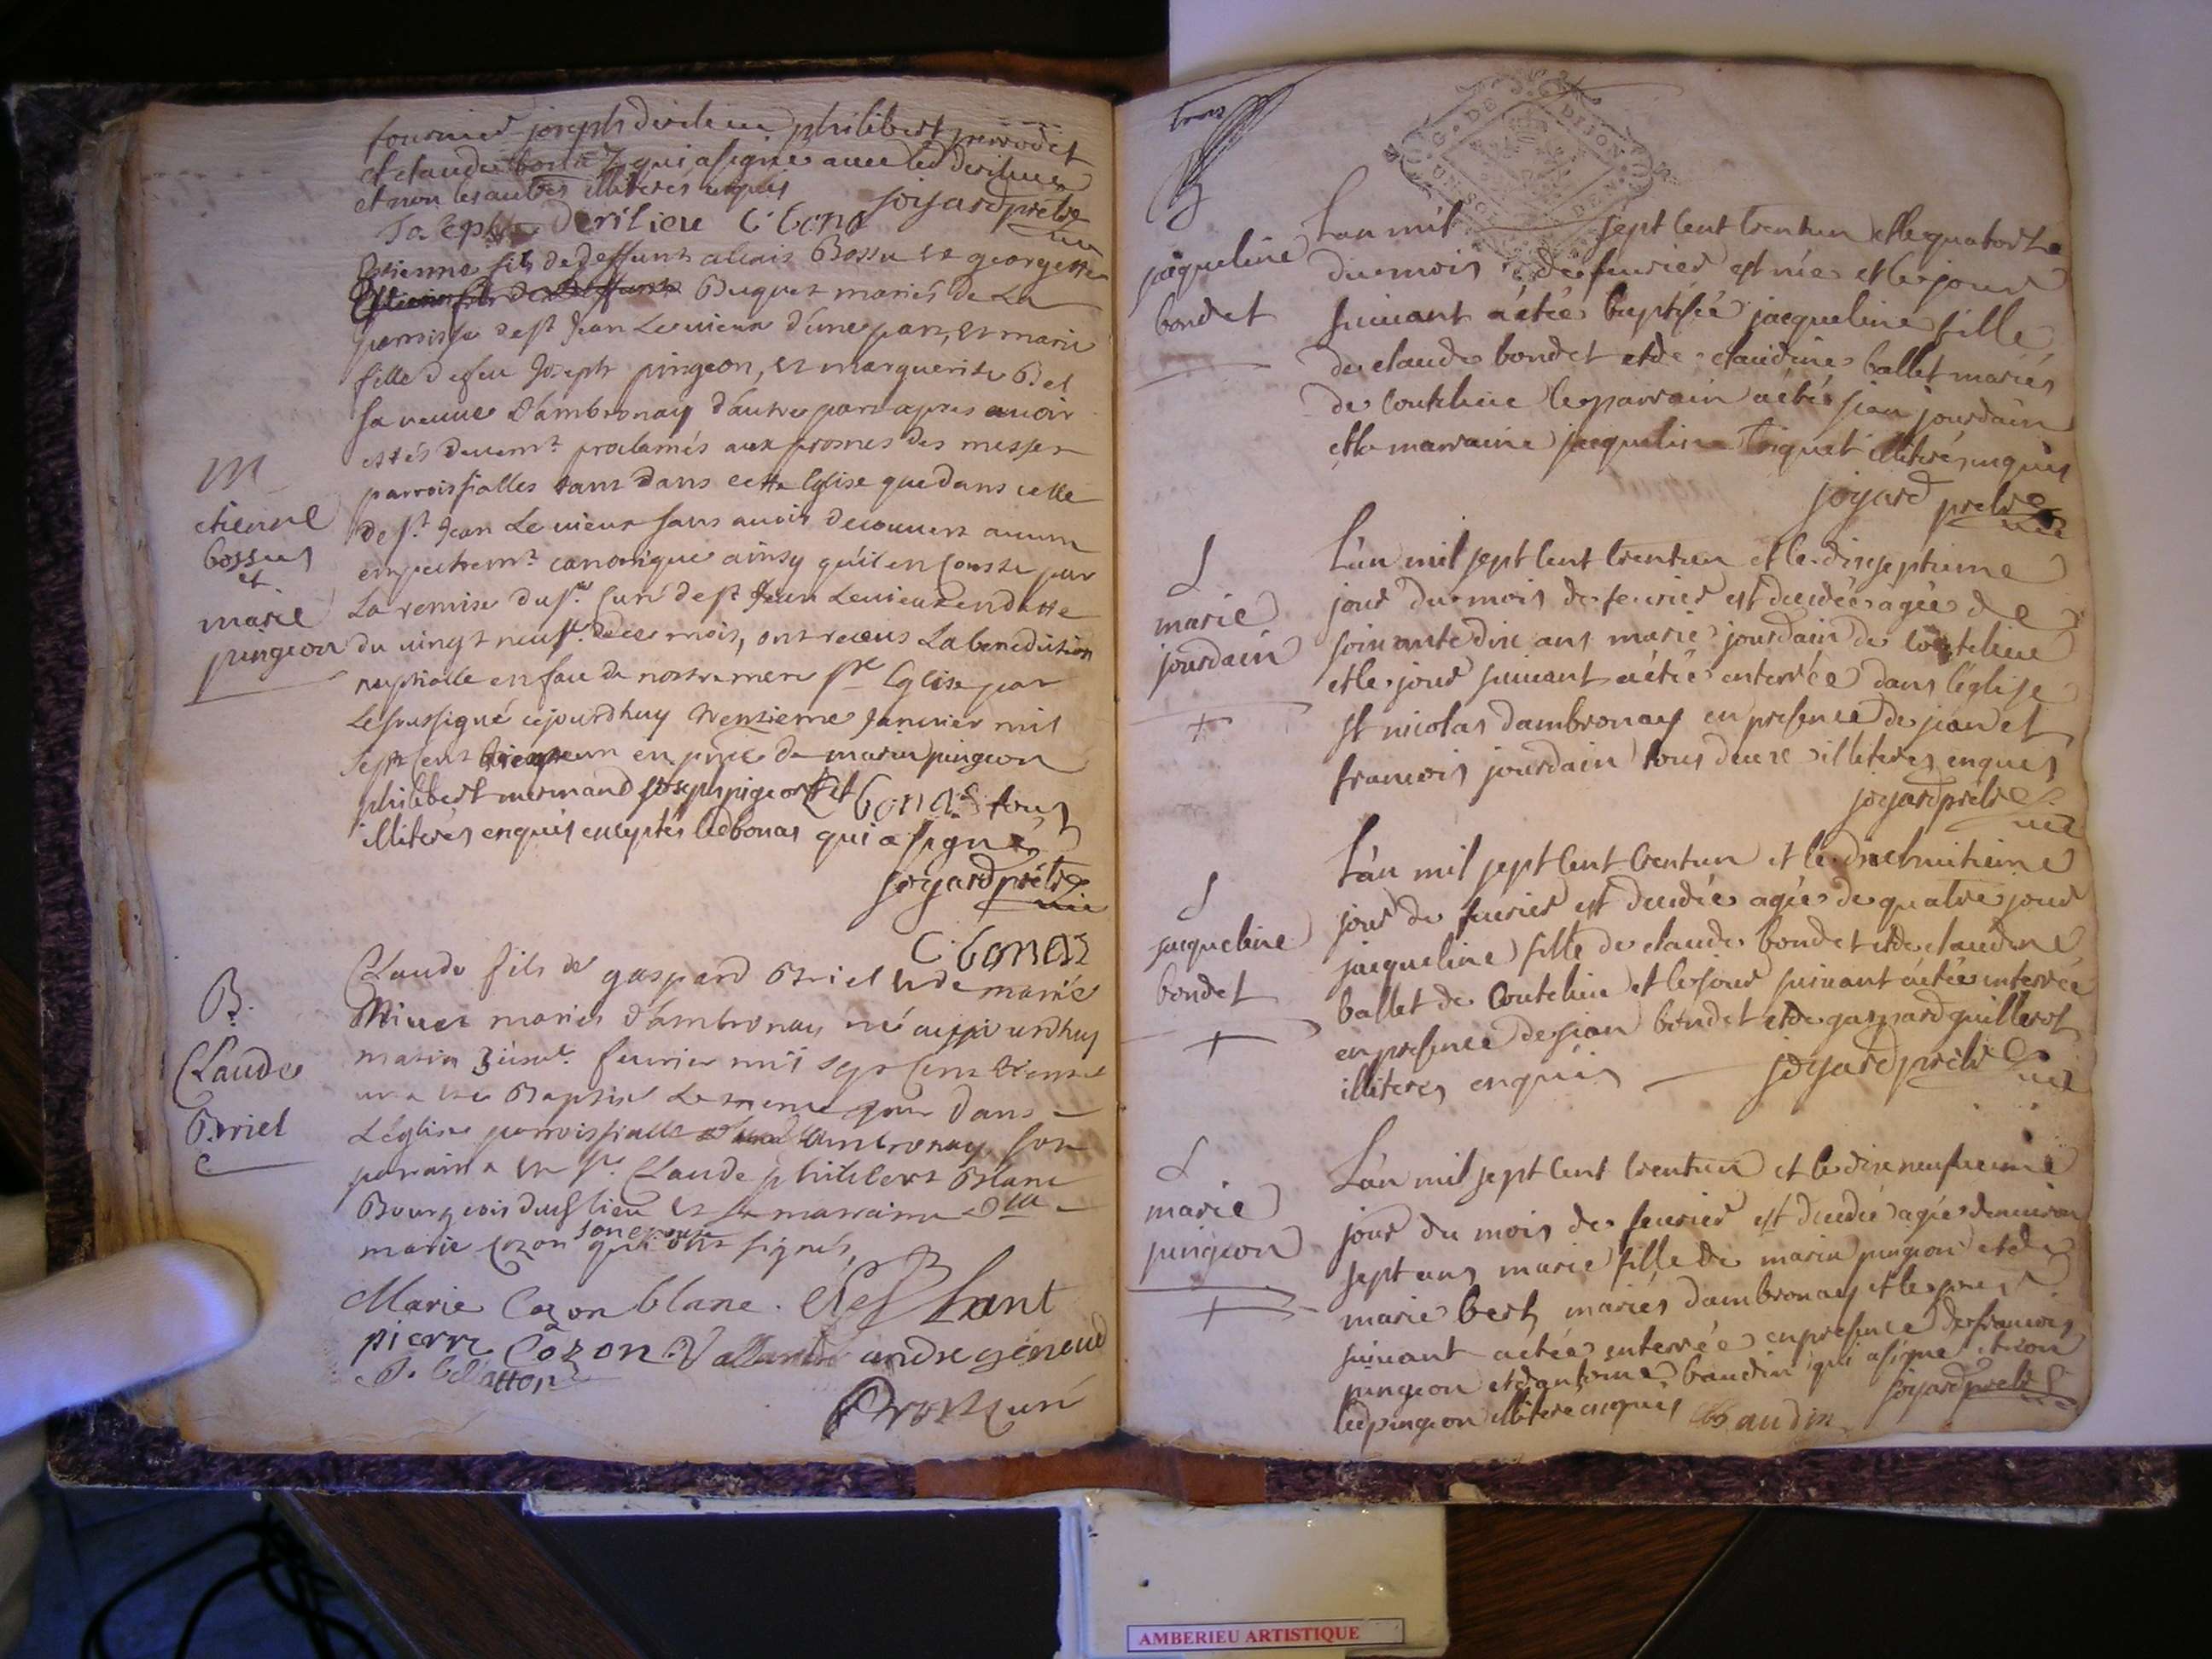 fournier joseph derilieu philibert perrodet
et claude bona qui a signé avec led derilieu
et non les autres illiterés enquis
joyard prêtre
Joseph Derilieu C bona
Estienne fils de deffunt Bossu et georgette
Buguet mariés de La
paroisse de st Jean Le vieux d'une part, et marie
fille de feu Joseph pingeon, et marguerite Bel
sa veuve d'ambronay d'autre part apres avoir
estés deuemt proclamés aux prosnes des messes
parroissialles tant dans cette Eglise que dans celle
de st Jean Le vieux sans avoir decouvert aucun
empechemt canonique ainsy qu'il en Conste par
La remise du sr Curé de st Jean Levieux en datte
du vingt neuf de ce mois, ont receus La benediction
nuptialle en face de nostre mere ste Eglise par
Le soussigné cejourdhuy trentieme Janvier mil
sept cent trente un en pnce de marin pingeon
philibert mermand joseph pigeon et C bonas tous
illiterés enquis exceptés led bonas qui a signé
joyard prêtre
C. bonas
M
etienne
bossu
et
marie
pingeon
Claude fils de gaspard Briel et de marie
mariés d'ambronay né aujourdhuy
matin fevrier mil sept cent trente
un a esté Baptisé Le meme jour dans
L'église parroissialle d'Ambronay son
parain a esté sr Claude philibert Blanc
Bourgeois dud lieu et sa marraine dlle
marie cozon son epouse qui ont signés
Marie Cozon blanc.
pierre Cozon. andre genoud
curé
B.
Claude
Briel
G. DE DIJON
UN SOL DEN
jaqueline
bondet
L'an mil sept cent trentun et le quatorze
du mois de fevrier est née et le jour
suivant a étée baptisée jacqueline fille
de claude bondet et de claudine ballet mariés
de coutelieu le parrain a étés jean jourdain
et la marraine jacqueline triquet illiterés enquis
joyard prêtre
marie
jourdain
L'an mil sept cent trentun et le dixseptieme
jour du mois de fevrier est decedée agée de
soixante dix ans marie jourdain de coutelieu
et le jour suivant a étée enterrée dans l'église
st nicolas d'ambronay en presence de jean et
francois jourdain tous deux illiteres enquis
joyard prêtre
jacqueline
bondet
L'an mil sept cent trentun et le dixhuitieme
jour de fevrier est decedée agée de quatre jour
jacqueline fille de claude bondet et de claudine
ballet de coutelieu et le jour suivant a étée enterrée
en presence de jean bondet et de gaspard guillerot
illiteres enquis joyard prêtre
marie
pingeon
L'an mil sept cent trentun et le dixneufvieme
jour du mois de fevrier est decedée agée denviron
sept ans marie fille de marin pingeon et de
marie bert mariés dambronay et le jour
suivant a étée enterrée en presence de francois
pingeon et d'antoine baudin qui a signé et non
led pingeon illiteré enquis joyard prêtre
Baudin
AMBERIEU ARTISTIQUE